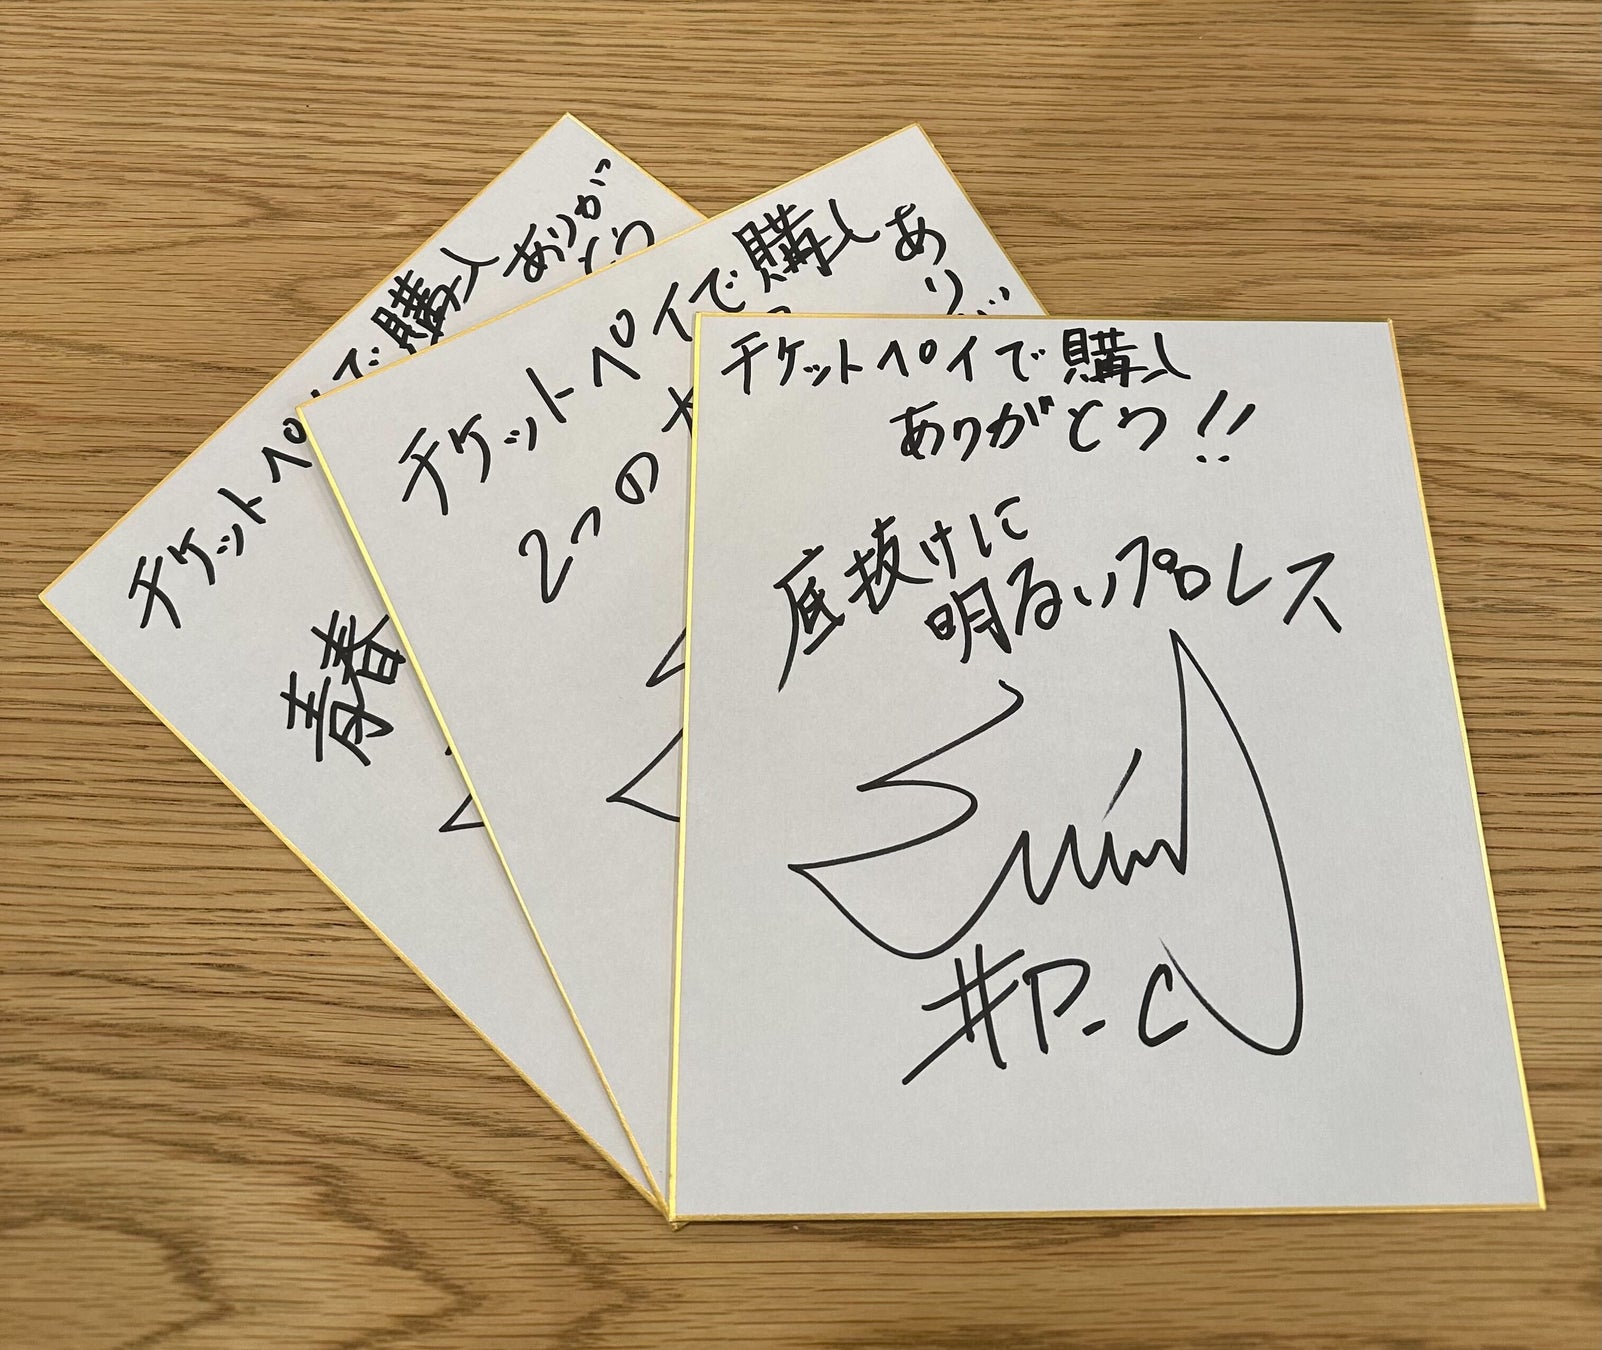 チケットペイで購入
ありがとう!!
底抜けに
明るいプロレス
#P.C
チケットペイで購入
あり
2つの
チケットペ
で購入
ありが
とう
青春